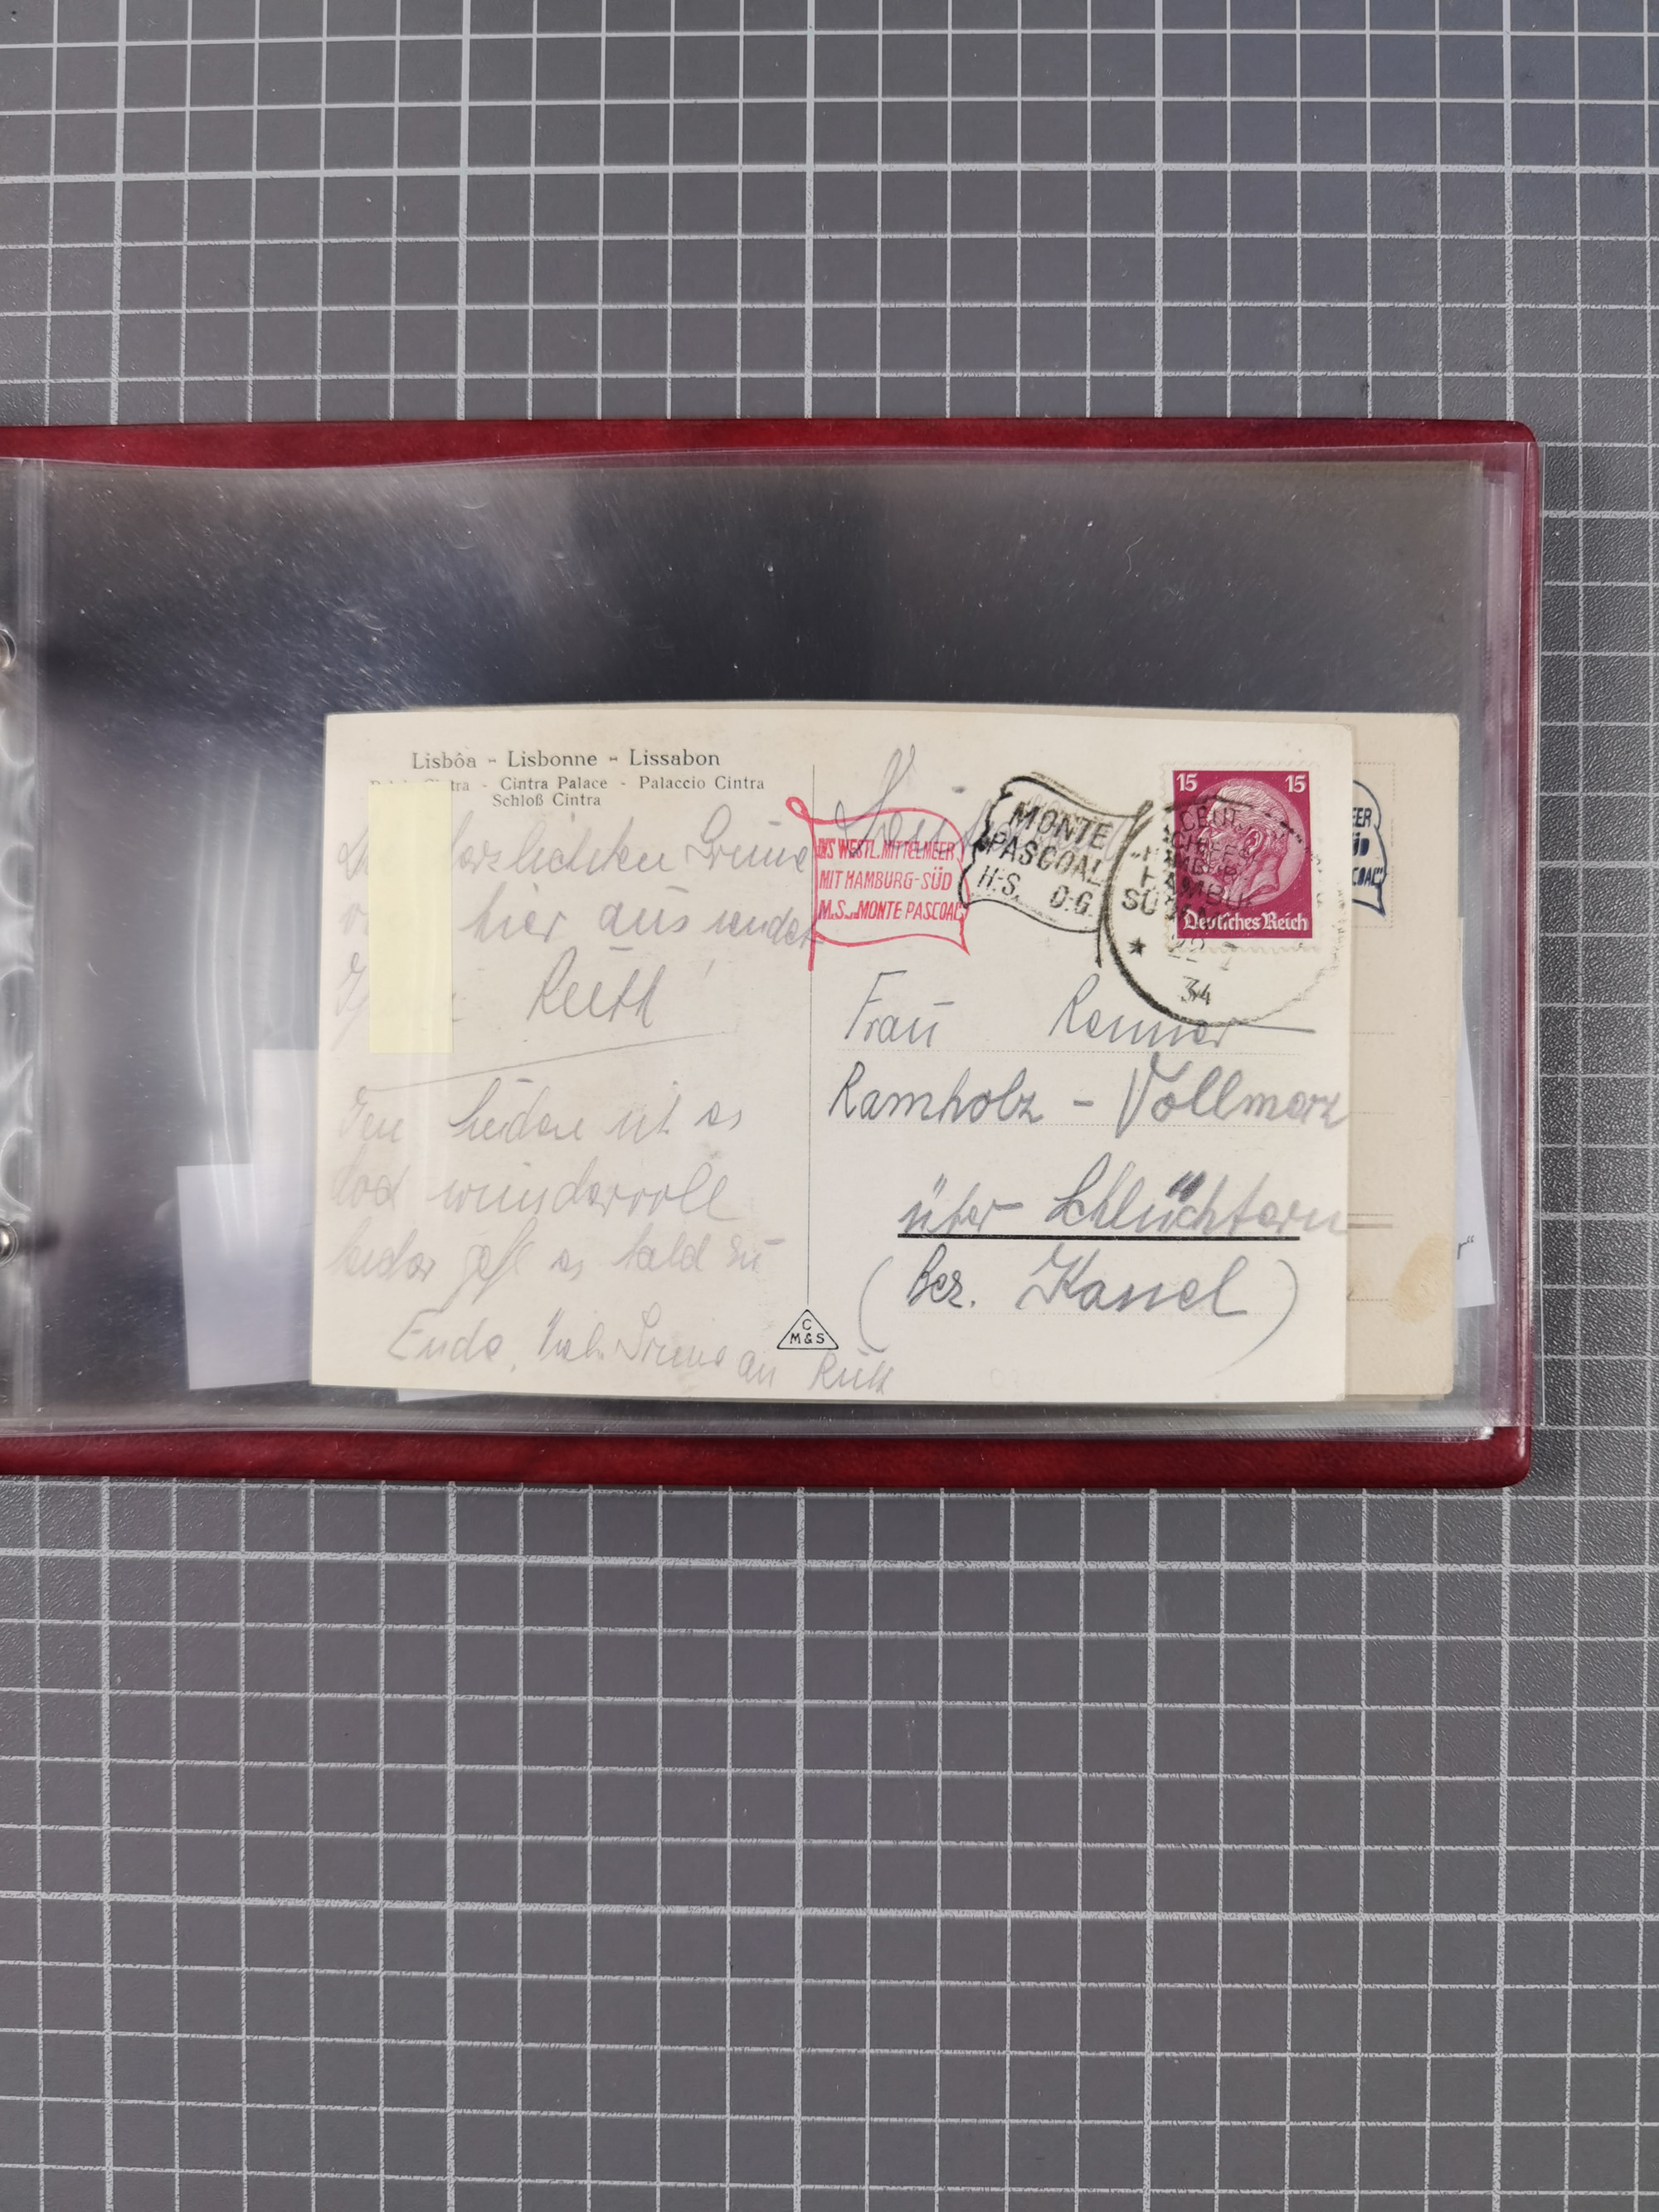 Lisbôa - Lisbonne - Lissabon
Cintra Palace - Palaccio Cintra
Schloß Cintra
herzlichsten Grüsse
hier aus sendet
Ruth
Den Süden ist es
doch wundervoll
leider geht es bald zu
Ende. Grüsse an
C
M&S
INS WESTL. MITTELMEER
MIT HAMBURG-SÜD
M.S. „MONTE PASCOAL"
MONTE
PASCOAL
H-S. D.G.
15 15
Deutsches Reich
34
Frau Renner
Ramholz - Vollmerz
über Schlüchtern
(Bez. Kassel)